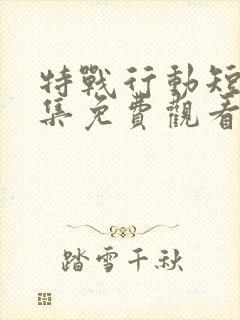 特戰行動短
集免費觀看
踏雪千秋